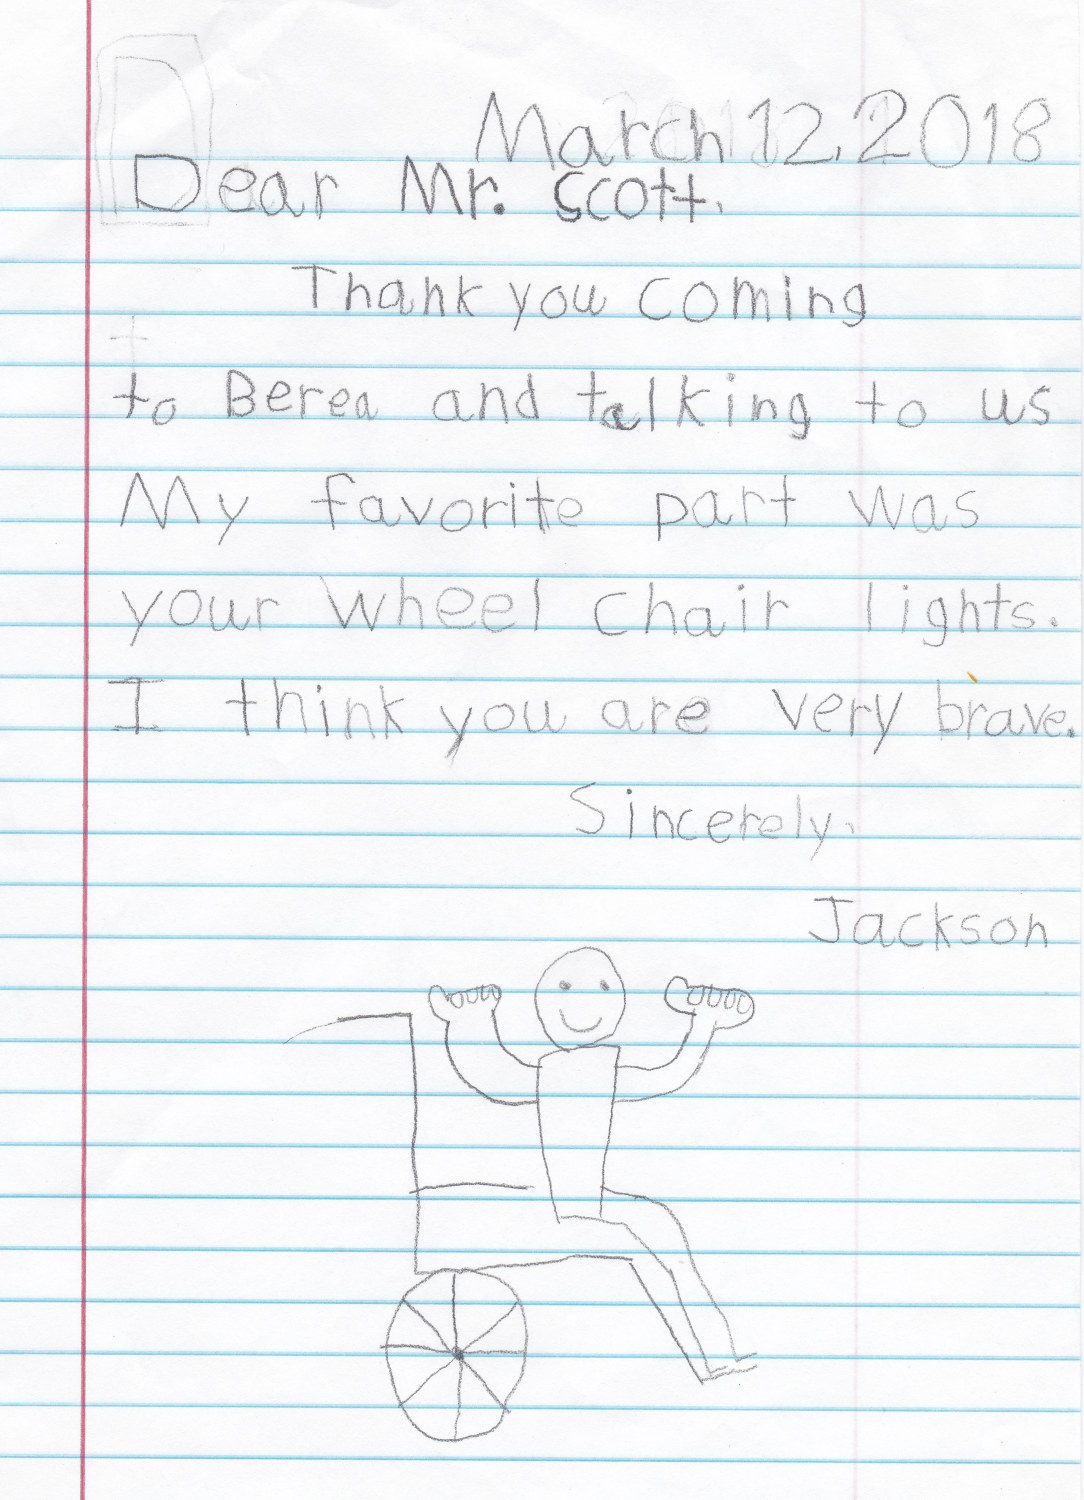 March 12, 2018
Dear Mr. Scott,
Thank you coming
to Berea and talking to us
My favorite part was
your wheel chair lights.
I think you are very brave.
Sincerely,
Jackson